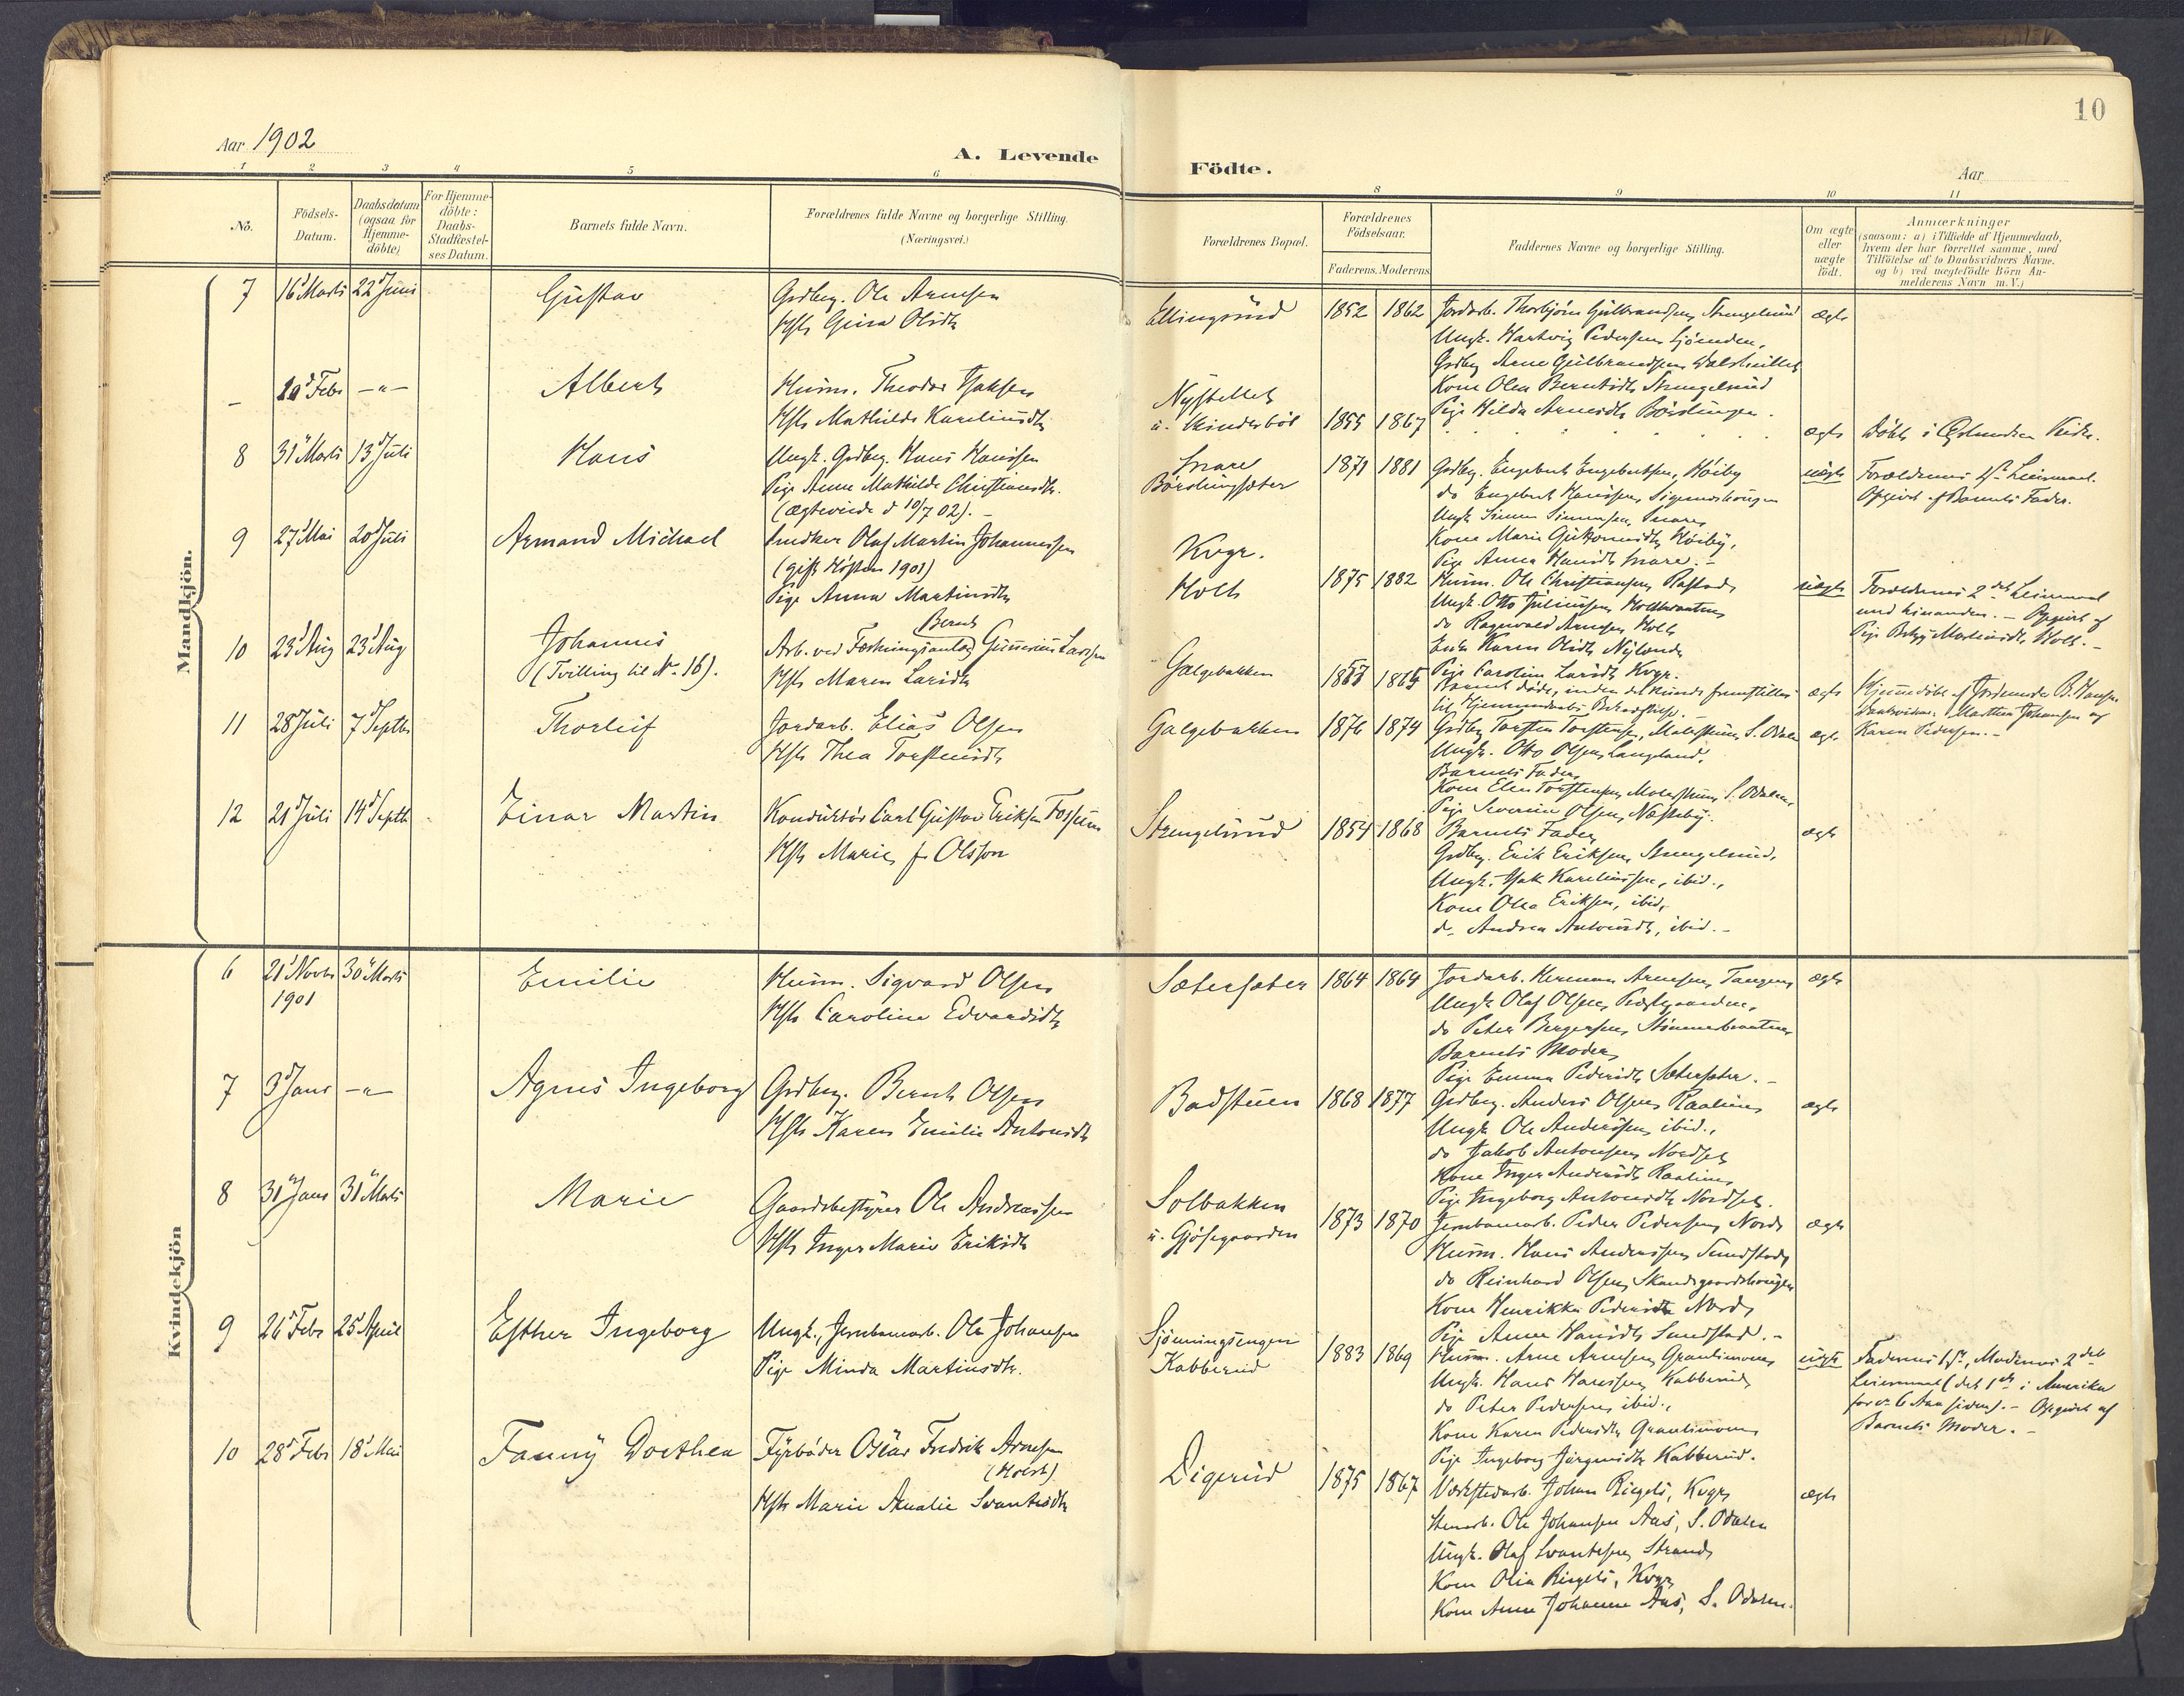 10
Aar 1902
A. Levende
Födte.
Aar
1 2 3 4 5 6
8 9 10 11
No.
Födsels-
Datum.
Daabsdatum
(ogsaa for
Hjemme-
döbte)
For Hjemme-
döbte:
Daabs-
Stadfæstel-
ses Datum.
Barnets fulde Navn.
Forældrenes fulde Navne og borgerlige Stilling.
(Næringsvei.)
Forældrenes Bopæl.
Forældrenes
Födselsaar.
Faderens. Moderens
Faddernes Navne og borgerlige Stilling.
Om ægte
eller
uægte
födt.
Anmærkninger
(saasom: a) i Tilfælde af Hjemmedaab,
hvem der har forrettet samme, med
Tilföielse af to Daabsvidners Navne.
og b) ved uægtefödte Börn An-
melderens Navn m. V.)
Mandkjön.
7 16 Marts 22 Juni
Gustav
Grdbrg. Ole Arnesen
Hst Gina Olsdtr
Ellingsrud
1852 1862
Jordarb. Thorbjörn Gulbrandsen, Strengelsrud
Ungk. Hartvig Pedersen
Grdbrg Arne Gulbrandsen
Kone Olea Berntsdtr Strengelsrud
Pige Hilda Arnesdtr
ægte
– 10 Febr –"–
Albert
Husm. Theodor Isaksen
Hst Mathilde Karelinusdtr
Nystellet
u. Skinderböl
1855 1867
ægte
Döbt i
8 31 Marts 13 Juli
Hans
Ungk. Grdbrg. Hans Hansen
Pige Anne Mathilde Christiansdtr.
(ægteviede d 10/7 02). –
Snare
Börslungsæter
1871 1881
Grdbrg. Engebret Engebretsen, Höiby
do Engebret Hansen,
Ungk Simen Simensen, Snare
Kone Marie Guttormsdtr Höiby,
Pige Anna Hansdtr Snare. –
uægte
Forældrenes 1ste Leiermaal.
Opgivet af Barnets Fader.
9 27 Mai 20 Juli
Armand Michael
Snedker Olaf Martin Johannessen
(gift Hösten 1901)
Pige Anna Martinsdtr
Kvgr.
Holt
1875 1882
Husm. Ole Christiansen, Rastad
Ungk. Otto Juliussen,
do Ragnvald Arnesen Holt
Enke Karen Olsdtr Nylende
Pige Caroline Larsdtr Kvgr.
uægte
Forældrenes 2det Leiermaal
med hinanden. – Opgivet af
Pige Martinsdtr Holt. –
10 23 Aug 23 Aug
Johannes
(Tvilling til No 16).
Bernt
Arb. ved Fæstningsanlæg Gunerius Larsen
Hst Maren Larsdtr
Galgebakken
1865
Barnet döde, inden det kunde fremstilles
til Hjemmedaabs Bekræftelse. –
ægte
Hjemmedöbt af Jordemoder B. Hansen
Daabsvidner: Marthea Johansen og
Karen Pedersen. –
11 28 Juli 7 Septbr
Thorleif
Jordarb. Elias Olsen
Hst Thea Torstensdtr
Galgebakken
1876 1874
Grdbrg Torsten Torstensen, S. Odalen
Ungk. Otto Olsen, Langland,
Barnets Fader,
Kone Elen Torstensen, S. Odalen,
Pige Severine Olsen, Næsteby.
ægte
12 21 Juli 14 Septbr
Einar Martin
Konduktör Carl Gustav Eriksen Fossum
Hst Marie f. Olsson
Strengelsrud
1854 1868
Barnets Fader,
Grdbrg. Erik Eriksen, Strengelsrud,
Ungk. Isak Karelinussen, ibid.,
Kone Olea Eriksen, ibid,
do Andrea Antonsdtr, ibid. –
ægte
Kvindekjön
6 21 Novbr 30 Marts
1901
Emilie
Husm. Sigvard Olsen
Hst Caroline Edvardsdtr
Sætersæter
1864 1864
Jordarb. Herman Arnesen, Tangen
Ungk Olaf Olsen, Præstegaarden,
do Peter Bergersen,
Barnets Moder,
Pige Emma Pedersdtr Sætersæter. –
ægte
7 3 Janr –"–
Agnes Ingeborg
Grdbrg. Bernt Olsen
Hst Karen Emilie Antonsdtr
Badstuen
1868 1877
Grdbrg. Anders Olsen
Ungk Ole Andersen, ibid.,
do Jakob Antonsen, Nordset
Kone Inger Andersdtr
Pige Ingeborg Antonsdtr Nordset.
ægte
8 31 Janr 31 Marts
Marie
Gaardsbestyrer Ole Andreassen
Hst Inger Marie Eriksdtr
Solbakken
u. Gjösegaarden
1873 1870
Jernbanearb. Peder Pedersen, Nord
Husm. Hans Andersen, Sundstad,
do Reinhard Olsen, Skandsgaardshaugen
Kone Henrikke Pedersdtr Nord,
Pige Anne Hansdtr Sundstad. –
ægte
9 26 Febr 25 April
Esther Ingeborg
Ungk., Jernbanearb. Ole Johansen
Pige Minda Martinsdtr.
Sjönningsengen
Kabberud
1883 1869
Husm. Arne Arnesen,
Ungk. Hans Hansen, Kabberud,
do Peter Pedersen, ibid.,
Kone Karen Pedersdtr
Pige Ingeborg Jörgensdtr Kabberud.
uægte
Faderens 1ste, Moderens 2det
Leiermaal (det 1ste i Amerika
for c. 6 Aar siden). – Opgivet af
Barnets Moder. –
10 28 Febr 18 Mai
Fanny Dorthea
Fyrböder Oscar Fredrik Arnesen
(Holst)
Hst Marie Amalie Svantesdtr
Digerud
1875 1867
Værkstedarb. Johan Riegels, Kvgr,
Stenarb. Ole Johansen Aas, S. Odalen
Ungk. Olaf Svantesen, Strand,
Kone Olia Riegels, Kvgr,
Kone Anne Johanne Aas, S. Odalen.
ægte